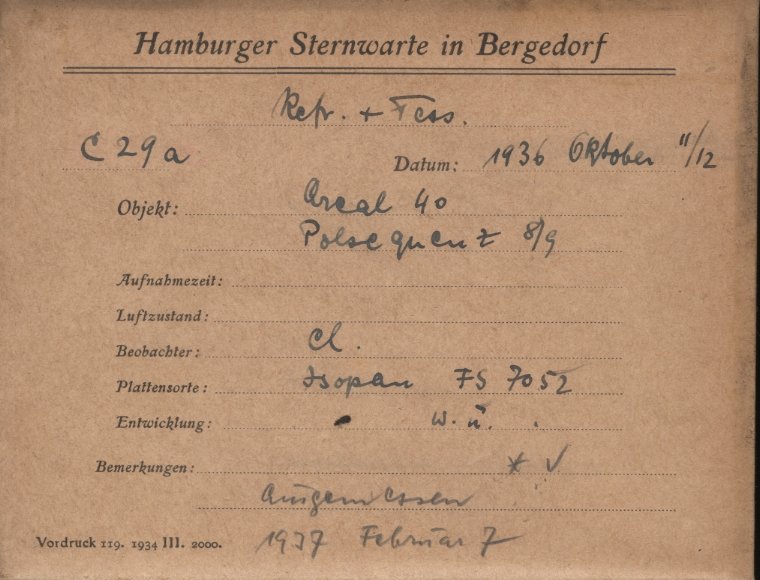 Hamburger Sternwarte in Bergedorf
Refr. + Tess.
C 29a Datum: 1936 Oktober 11/12
Objekt: Areal 40
Polsequenz 8/9
Aufnahmezeit:
Luftzustand:
Beobachter: Cl.
Plattensorte: Isopan FS 7052
Entwicklung: w. ü.
Bemerkungen: * √
Ausgemessen
Vordruck 119. 1934 III. 2000. 1937 Februar 7